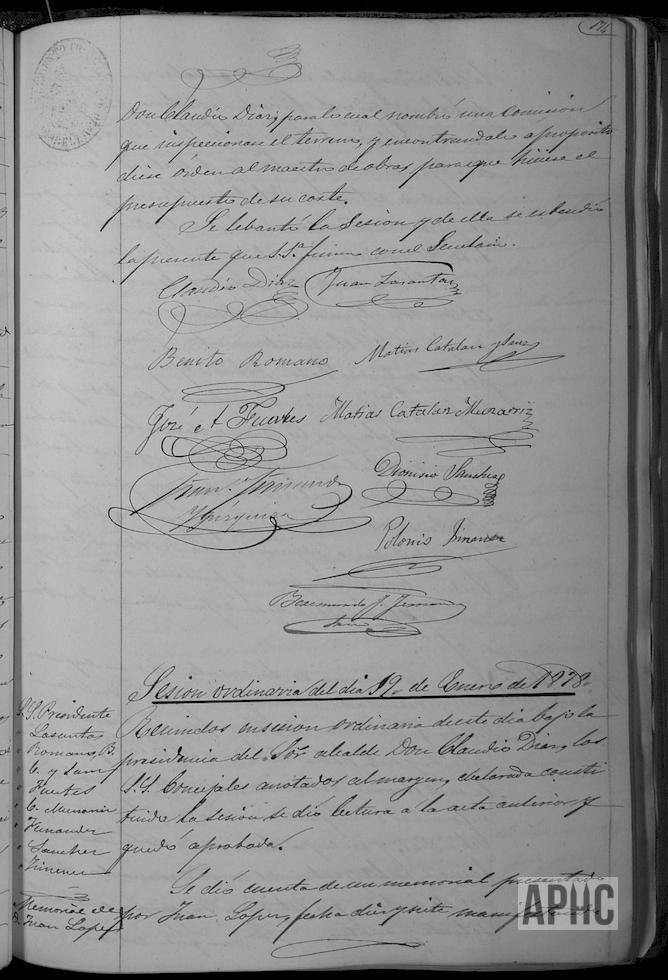 174
Don Claudio Diaz, para lo cual nombró una Comisión
que inspecionase el terreno, y encontrandole apropósito
diese órden al maestro de obras para que hiciese el
presupuesto de su coste.
Se lebantó la Sesion y de ella se estendió
la presente que S.Sª firma con el Secretario.
Claudio Diaz Juan Lasantas
Benito Romano Matias Catalan y Sanz
José A Fuertes Matias Catalan Munarriz
Dionisio Sanchez
Polonio Jimenez
Sesion ordinaria del dia 19 de Enero de 1878.
S.S. Presidente
Lasantas
Romano, B.
C. y Sanz
Fuertes
C. Munarriz
Fernandez
Sanchez
Jimenez
Reunidos en sesion ordinaria de este dia bajo la
presidencia del Sor. alcalde Don Claudio Diaz, los
S.S. Concejales anotados al margen, declarada consti
tuida la sesion se dió lectura a la acta anterior y
quedó aprobada.
Memorial de
Juan Lopez
Se dió cuenta de un memorial presentado
por Juan Lopez, fecha diez y siete manifestando
APHC